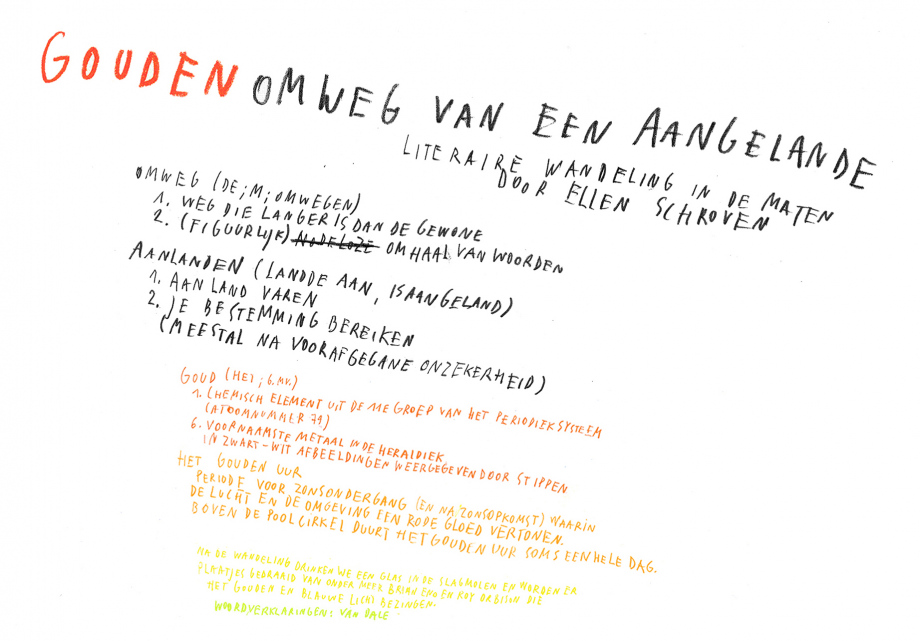 GOUDEN OMWEG VAN EEN AANGELANDE
LITERAIRE WANDELING IN DE MATEN
DOOR ELLEN SCHROVEN
OMWEG (DE; M; OMWEGEN)
1. WEG DIE LANGER IS DAN DE GEWONE
2. (FIGUURLIJK) NODELOZE OMHAAL VAN WOORDEN
AANLANDEN (LANDDE AAN, IS AANGELAND)
1. AAN LAND VAREN
2. JE BESTEMMING BEREIKEN
(MEESTAL NA VOORAFGEGANE ONZEKERHEID)
GOUD (HET; G.MV.)
1. CHEMISCH ELEMENT UIT DE 11E GROEP VAN HET PERIODIEK SYSTEEM
(ATOOMNUMMER 79)
6. VOORNAAMSTE METAAL IN DE HERALDIEK
IN ZWART-WIT AFBEELDINGEN WEERGEGEVEN DOOR STIPPEN
HET GOUDEN UUR
PERIODE VOOR ZONSONDERGANG (EN NA ZONSOPKOMST) WAARIN
DE LUCHT EN DE OMGEVING EEN RODE GLOED VERTONEN.
BOVEN DE POOLCIRKEL DUURT HET GOUDEN UUR SOMS EEN HELE DAG.
NA DE WANDELING DRINKEN WE EEN GLAS IN DE SLAGMOLEN EN WORDEN ER
PLAATJES GEDRAAID VAN ONDER MEER BRIAN ENO EN ROY ORBISON DIE
HET GOUDEN EN BLAUWE LICHT BEZINGEN.
WOORDVERKLARINGEN: VAN DALE